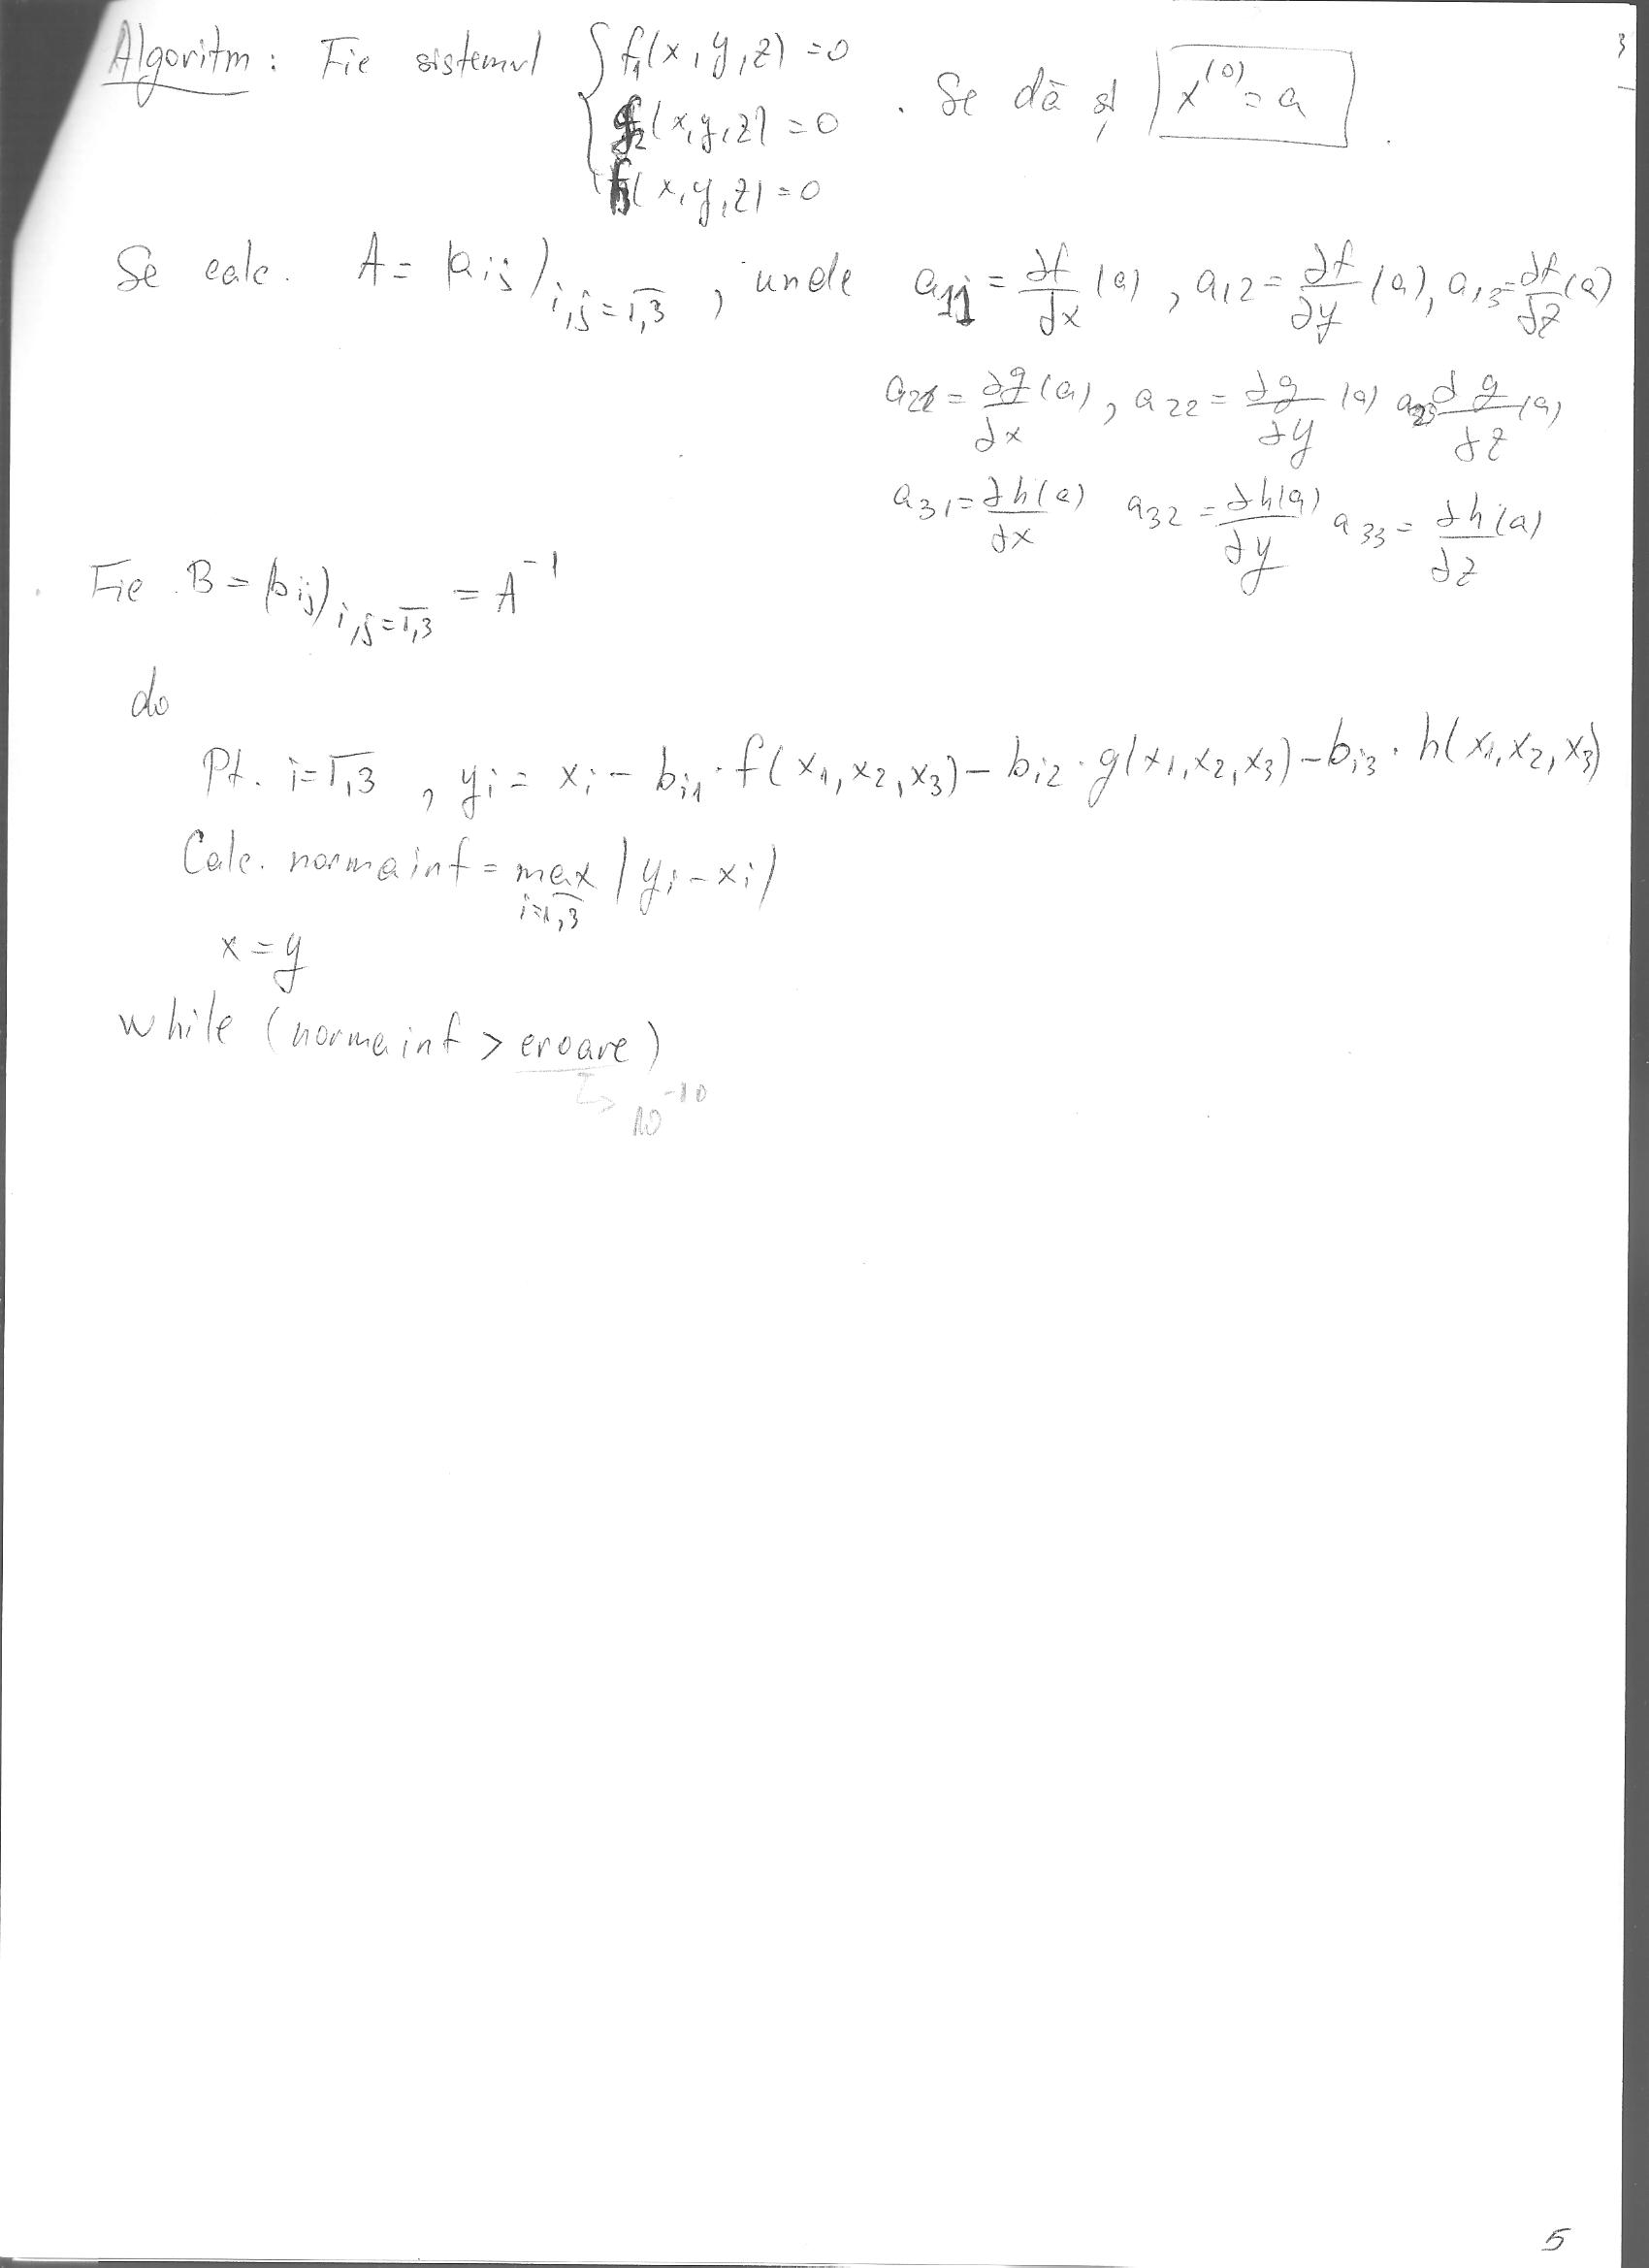 3
Algoritm: Fie sistemul { f₁(x, y, z) = 0 . Se dă și x⁽⁰⁾ = a .
f₂(x, y, z) = 0
f₃(x, y, z) = 0
Se calc. A = (aij) i,j = 1,3 , unde a11 = ∂f/∂x (a) , a12 = ∂f/∂y (a), a13 = ∂f/∂z (a)
a21 = ∂g/∂x (a) , a22 = ∂g/∂y (a) a23 ∂g/∂z (a)
a31 = ∂h(a)/∂x a32 = ∂h(a)/∂y a33 = ∂h(a)/∂z
Fie B = (bij) i,j = 1,3 = A⁻¹
do
Pt. i = 1,3 , yi = xi − bi1 · f(x1, x2, x3) − bi2 · g(x1, x2, x3) − bi3 · h(x1, x2, x3)
Calc. normainf = max i=1,3 |yi − xi|
x = y
while (normainf > eroare)
↳ 10⁻¹⁰
5